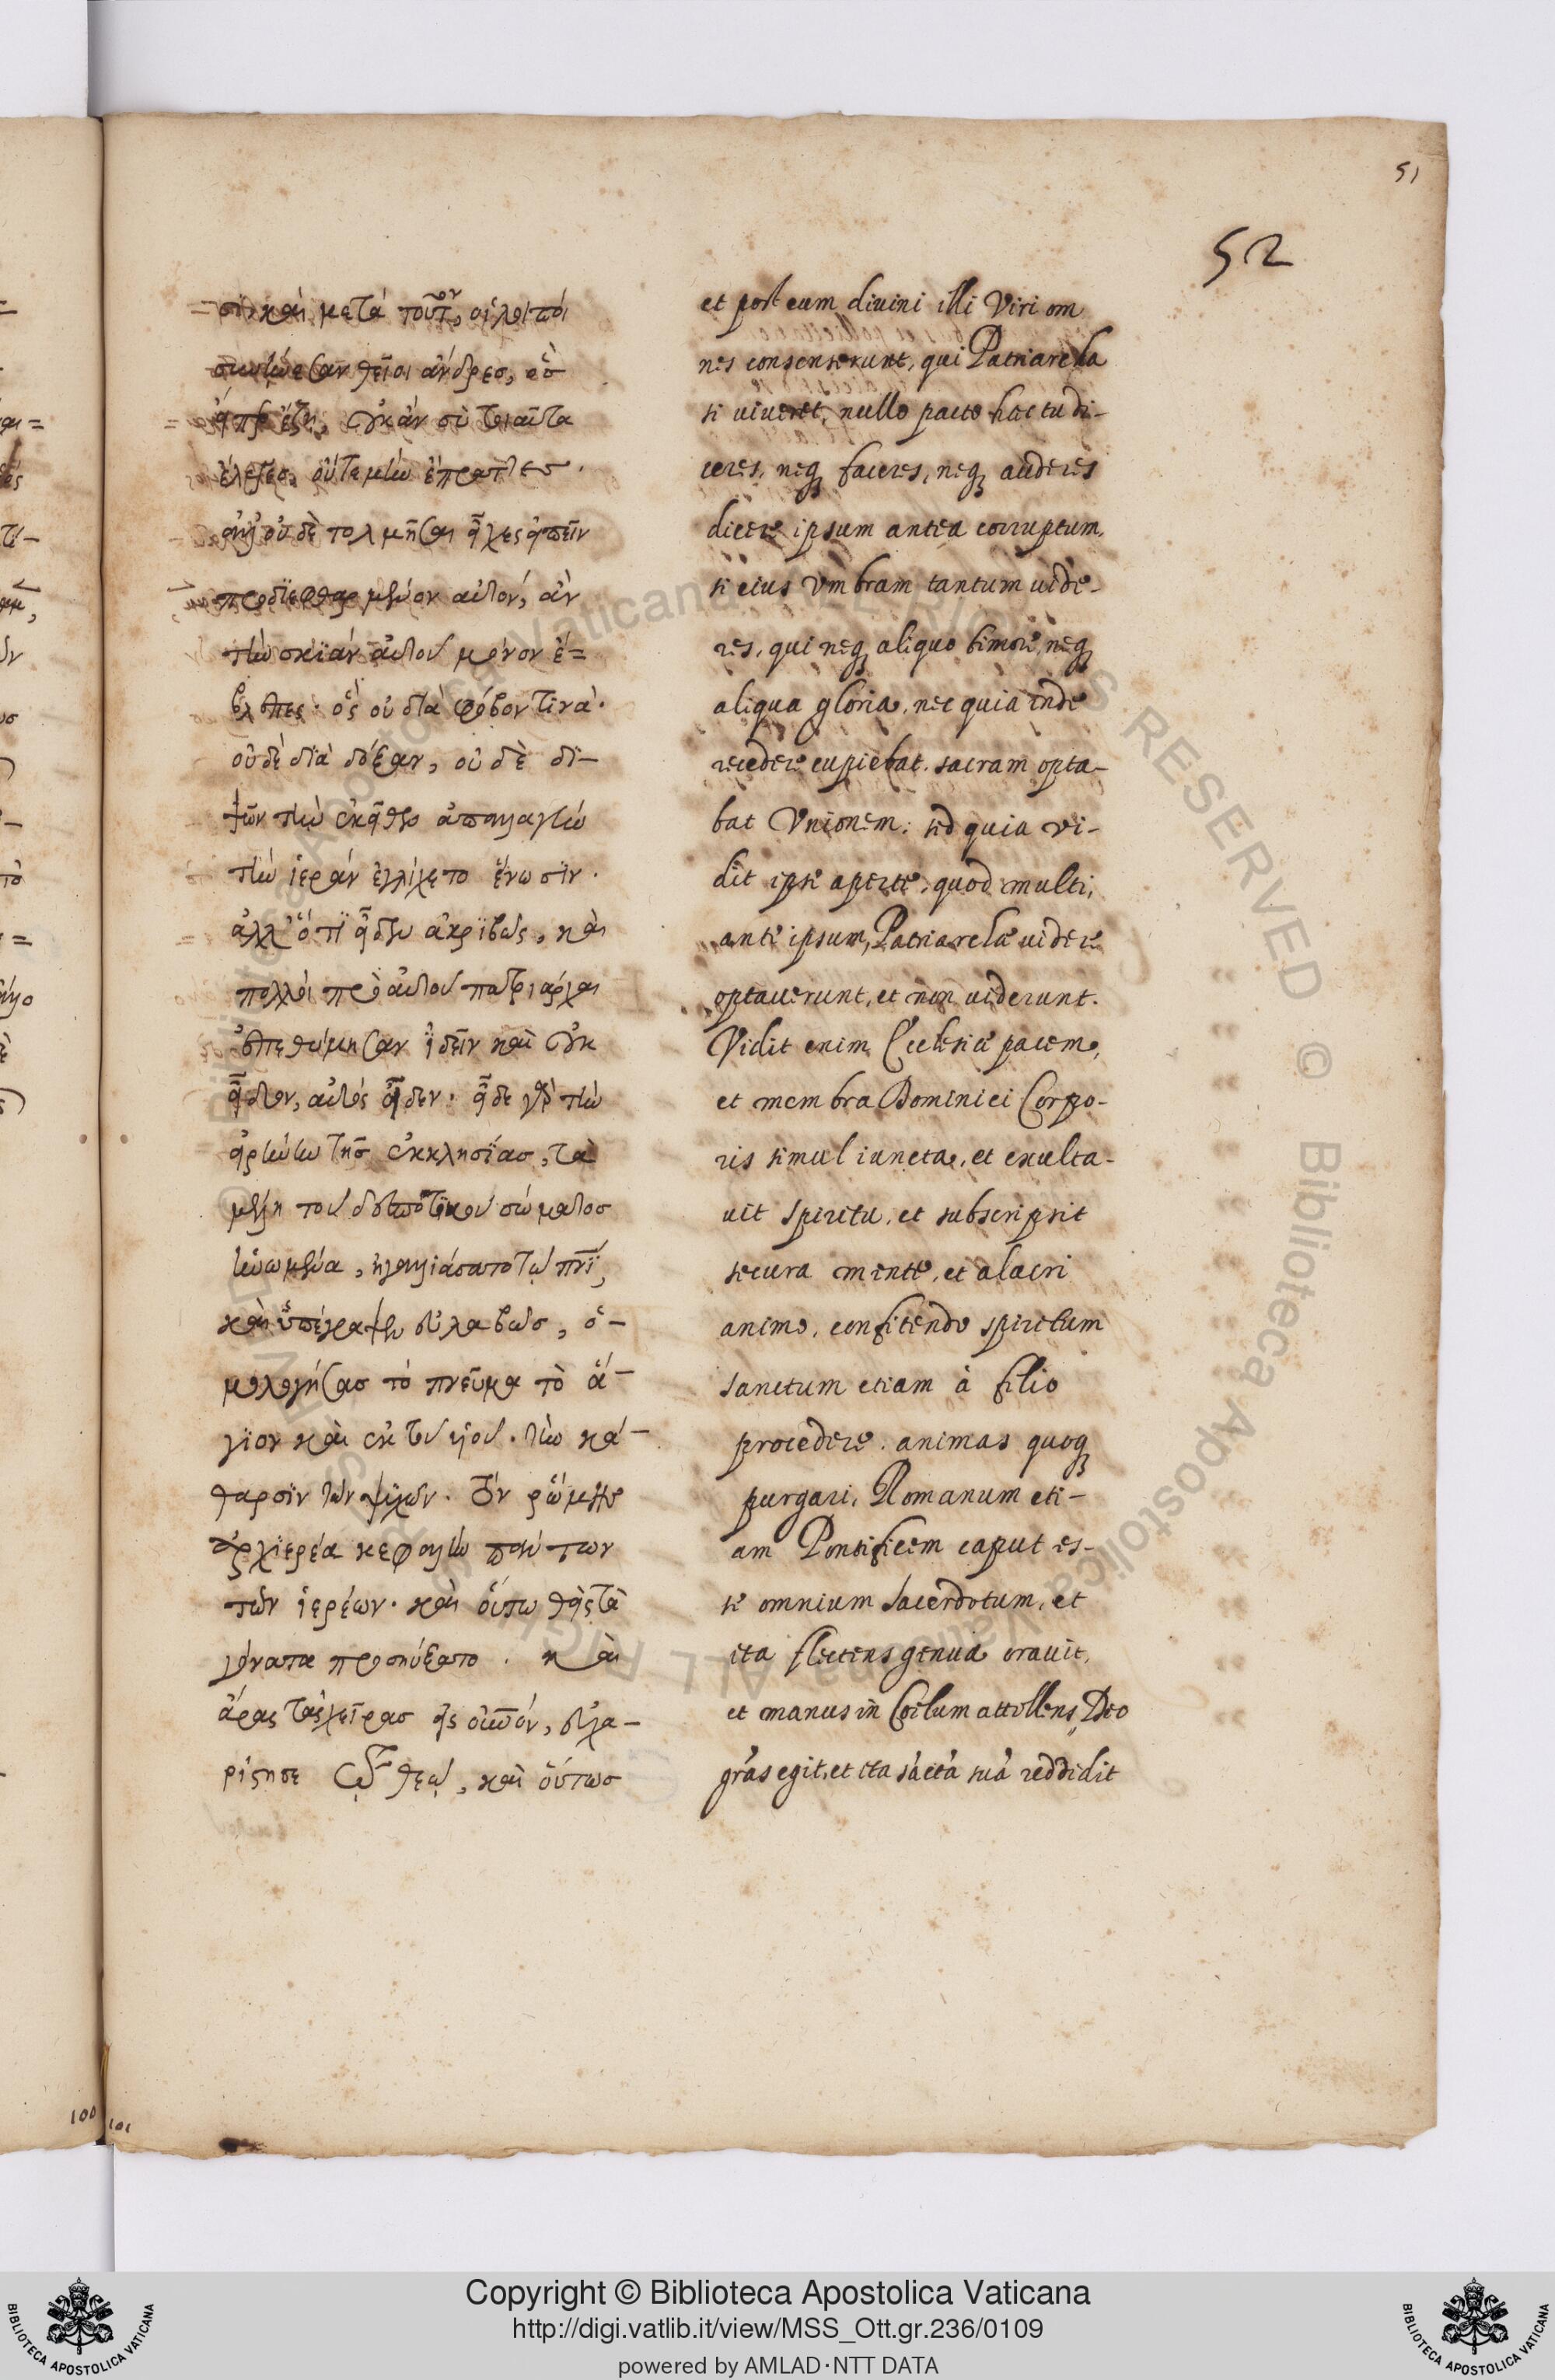 51
52
σι καὶ μετὰ τοῦτον, οἱ λοιποὶ
συνήνεσαν θεῖοι ἄνδρεσ, ὃσ
εἴπερ ἔζη, οὐκ ἂν σὺ τοιαῦτα
ἔλεγεσ, οὔτε μὴν ἔπραττεσ.
ἀλλ' οὐδὲ τολμῆσαι εἶχες εἰπεῖν
προδιεφθαρμένον αὐτόν, ἂν
τὴν σκϊὰν αὐτοῦ μόνον ἔ=
βλεπες. ὃς οὐ διὰ φόβον τινὰ.
οὐδὲ διὰ δόξαν, οὐδὲ δι–
ψῶν τὴν ἐκεῖθεν ἀπαλλαγὴν
τὴν ἱερὰν ἐγλίχετο ἕνωσϊν.
ἀλλ' ὅτϊ εἶδεν ἀκρϊβῶς, καὶ
πολλοὶ πρὸ αὐτοῦ πατριάρχαι
ἐπεθύμησαν ἰδεῖν καὶ οὐκ
εἶδον, αὐτὸς εἶδεν. εἶδε γὰρ τὴν
εἰρήνην τῆσ ἐκκλησίασ, τὰ
μέλη τοῦ δεσποτικοῦ σώματοσ
ἑνωμένα, ἠγαλλιάσατο τῷ πνϊ,
καὶ ὑπέγραψεν εὐλαβῶσ, ὁ–
μολογήσασ τὸ πνεῦμα τὸ ἅ–
γϊον καὶ ἐκ τοῦ υἱοῦ. τὴν κά–
θαρσϊν τῶν ψυχῶν. τὸν ῥώμησ
ἀρχϊερέα κεφαλὴν πάντων
τῶν ἱερέων. καὶ οὕτω θεὶς τὰ
γόνατα προσηύξατο. καὶ
ἄρας τὰς χεῖρασ εἰς οὐνόν, εὐχα–
ρίστησε τῷ θεῷ, καὶ οὕτωσ
et post eum diuini illi Viri om
nes consenserunt, qui Patriarcha
si uiueret, nullo pacto hoc tu di–
ceres, neq faceres, neq auderes
dicere ipsum antea corruptum,
si eius Vmbram tantum uide–
res, qui neq aliquo timore, neq
aliqua gloria, nec quia inde
recedere cupiebat. sacram opta–
bat Vnionem: sed quia vi–
dit ipse aperte, quod multi,
ante ipsum, Patriarchæ uidere
optauerunt, et non uiderunt.
Vidit enim Ecclesiæ pacem,
et membra Dominici Corpo–
ris simul iuncta, et exulta–
uit spiritu, et subscripsit
secura mente, et alacri
animo, confitendo spiritum
sanctum etiam à filio
procedere. animas quoq
purgari, Romanum eti–
am Pontificem caput es–
se omnium sacerdotum, et
ita flectens genua orauit,
et manus in Coelum attollens, Deo
grãs egit, et ita sãctã suã reddidit
100
101
Copyright © Biblioteca Apostolica Vaticana
http://digi.vatlib.it/view/MSS_Ott.gr.236/0109
powered by AMLAD·NTT DATA